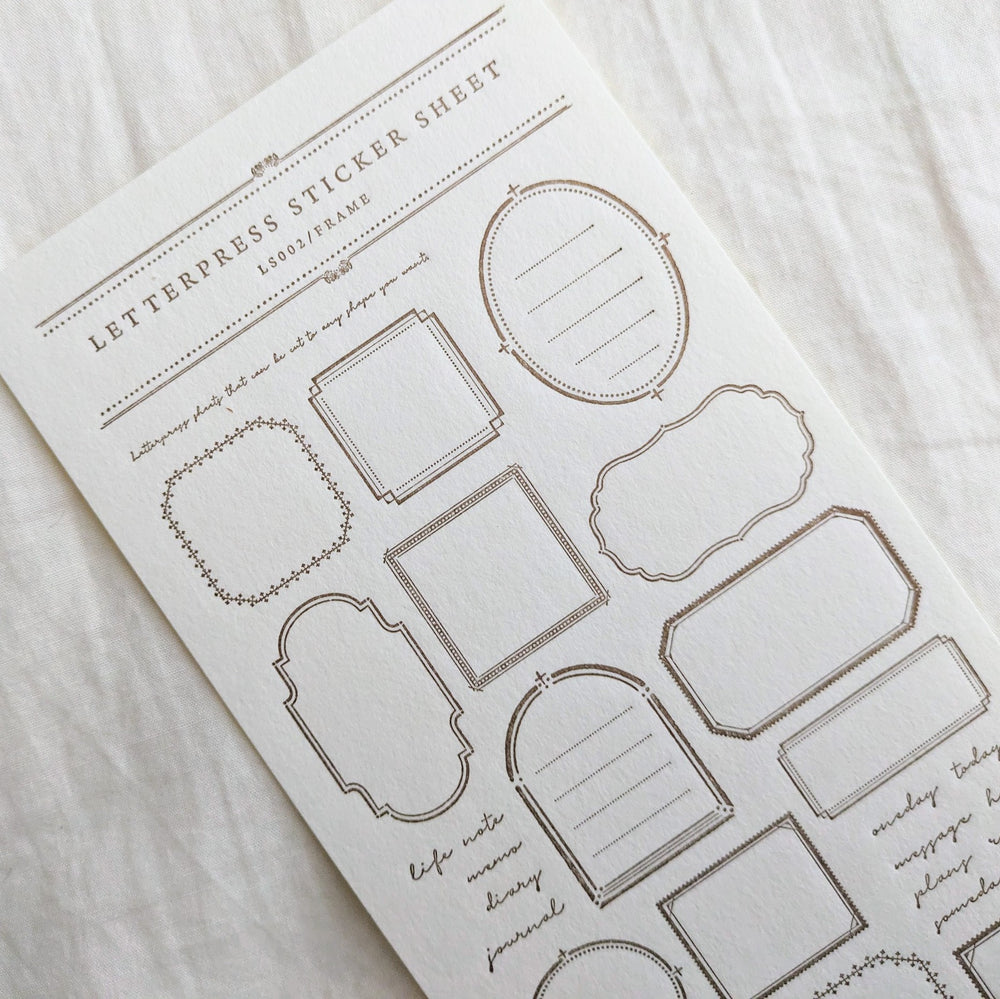 LETTERPRESS STICKER SHEET
LS002/FRAME
Letterpress sheets that can be cut to any shape you want
life note
memo
diary
journal
oneday today
message
plans
someday